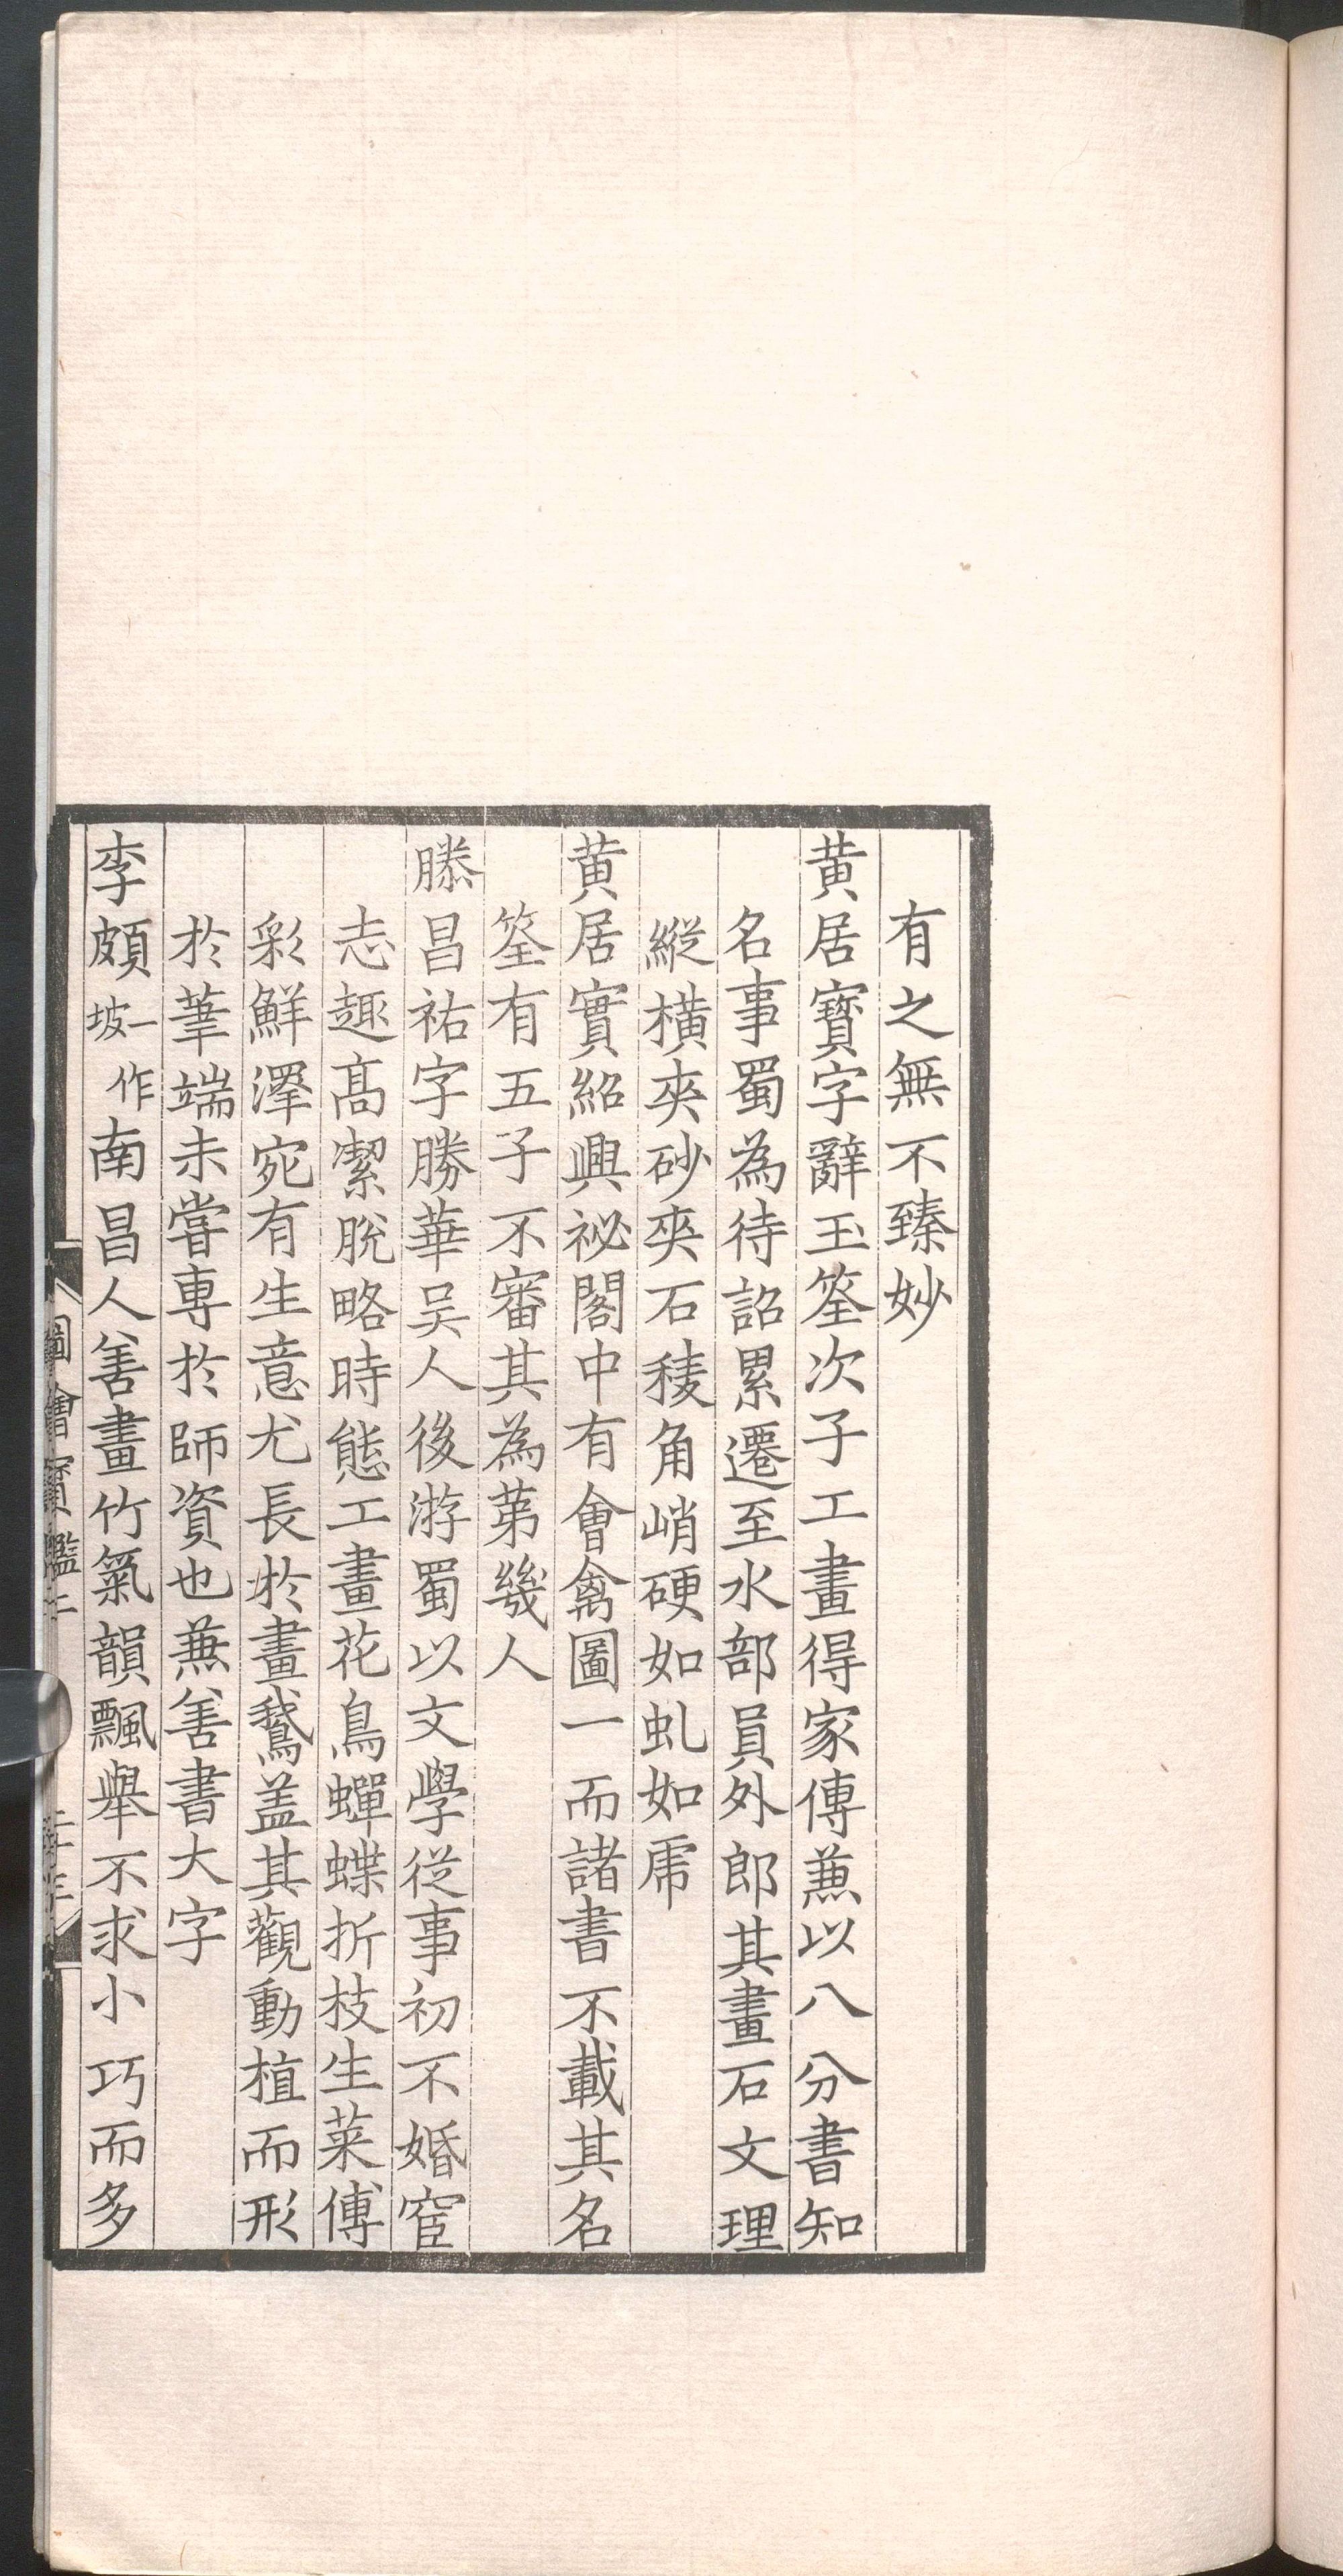 有之無不臻妙
黄居寳字辭玉筌次子工畫得家傳蕪以八分書知
名事蜀為待詔累遷至水部員外郎其畫石文理
縱横夾砂夾石稜角峭硬如虬如虎
黄居實紹興祕閣中有會禽圖一而諸書不載其名
筌有五子不審其為苐幾人
滕昌祐字勝華吴人後游蜀以文學從事初不婚宦
志趣髙潔脫略時態工畫花鳥蟬蝶折枝生菜傅
彩鮮澤宛有生意尤長於畫鵞盖其觀動植而形
於筆端未嘗專於師資也蕪善書大字
李頗一作坡南昌人善畫竹氣韻飄舉不求小巧而多
圖繪寳鑑二